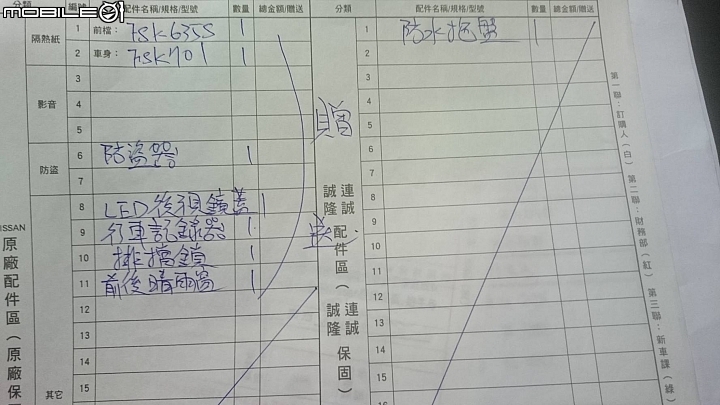 mobile01
分類 編號 配件名稱/規格/型號 數量 總金額/贈送 分類 配件名稱/規格/型號 數量 總金額/贈送
隔熱紙 1 前檔：FSK635S 1
2 車身：FSK701 1
影音 3
4
5
防盜 6 防盜器 1
7
8 LED後視鏡蓋 1
9 行車記錄器 1
10 排擋鎖 1
11 前後晴雨窗 1
12
13
14
其它 15
NISSAN
原廠配件區（原廠保
贈
送
連誠 誠隆 配件區（連誠 誠隆 保固）
1 防水拖盤
2
3
4
5
6
7
8
9
10
11
12
13
14
15
16
第一聯：訂購人（白） 第二聯：財務部（紅） 第三聯：新車課（綠）